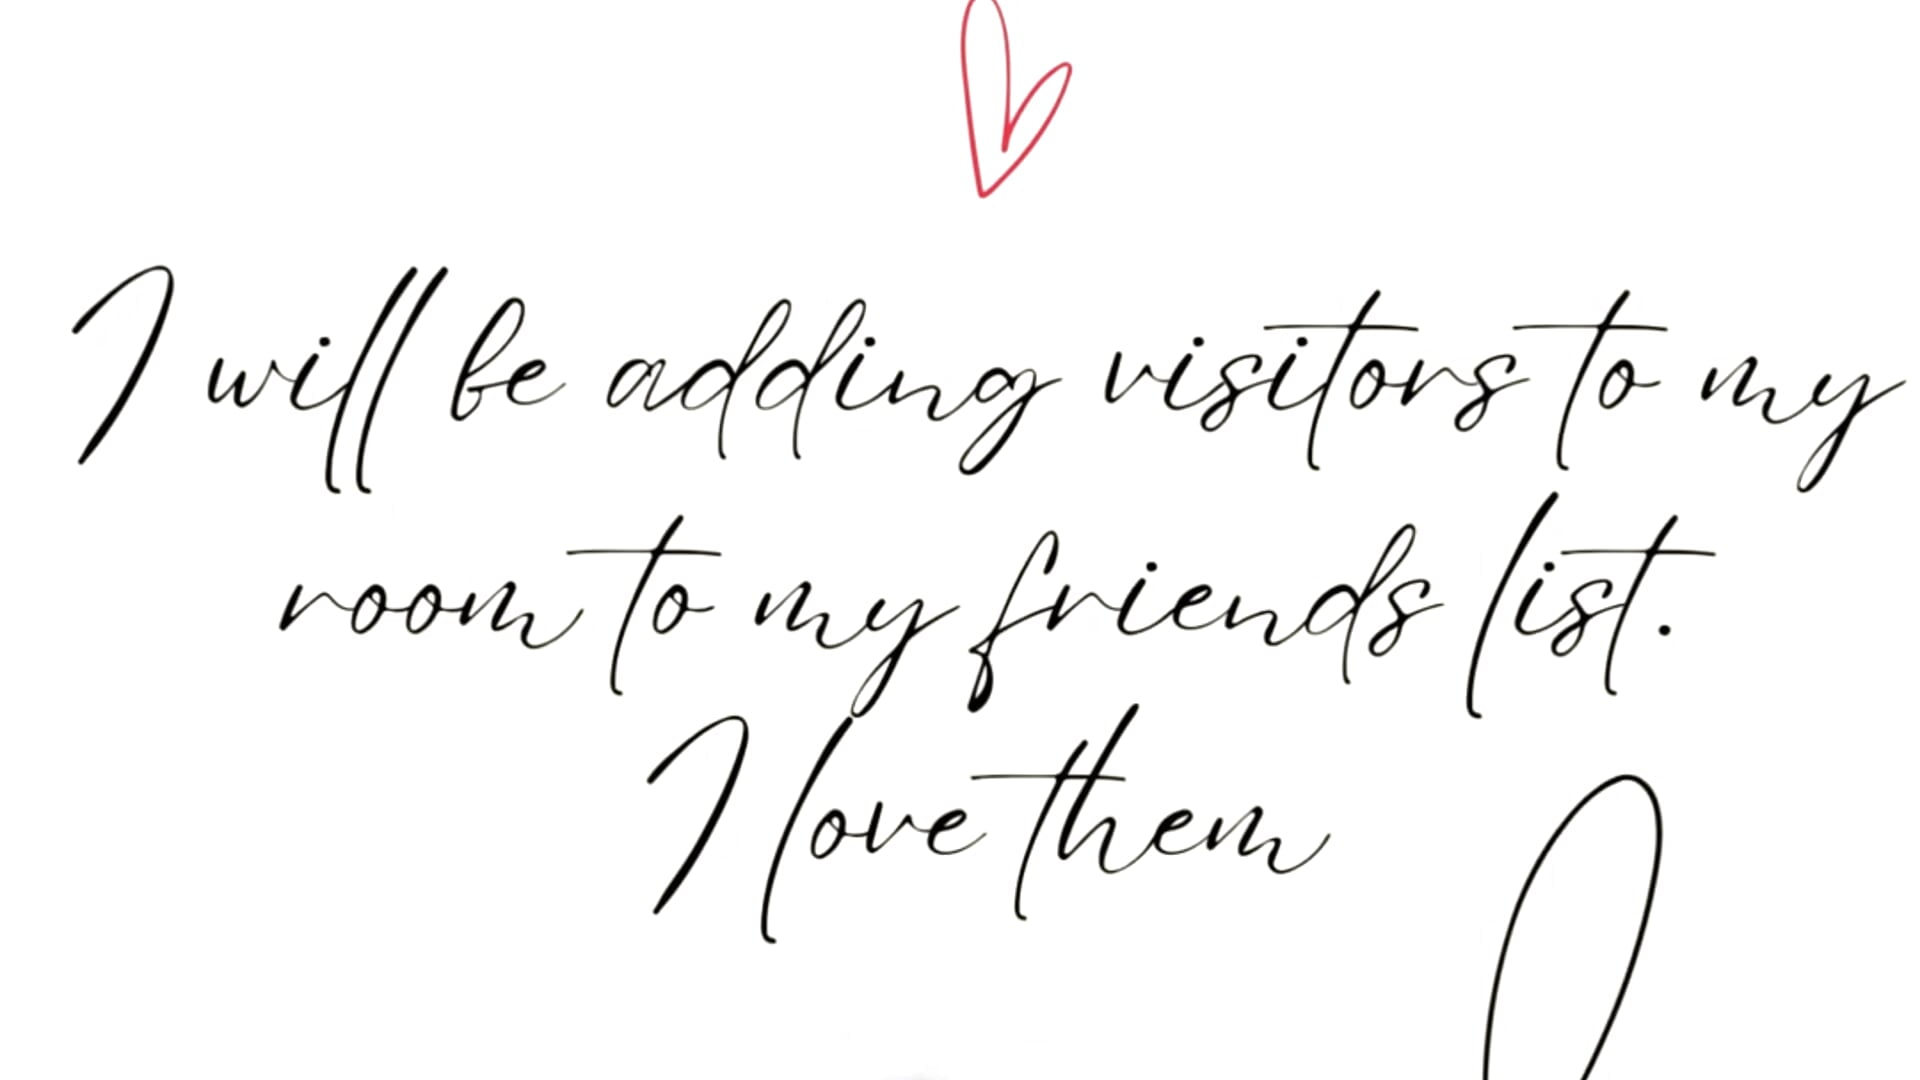 I will be adding visitors to my
room to my friends list.
I love them